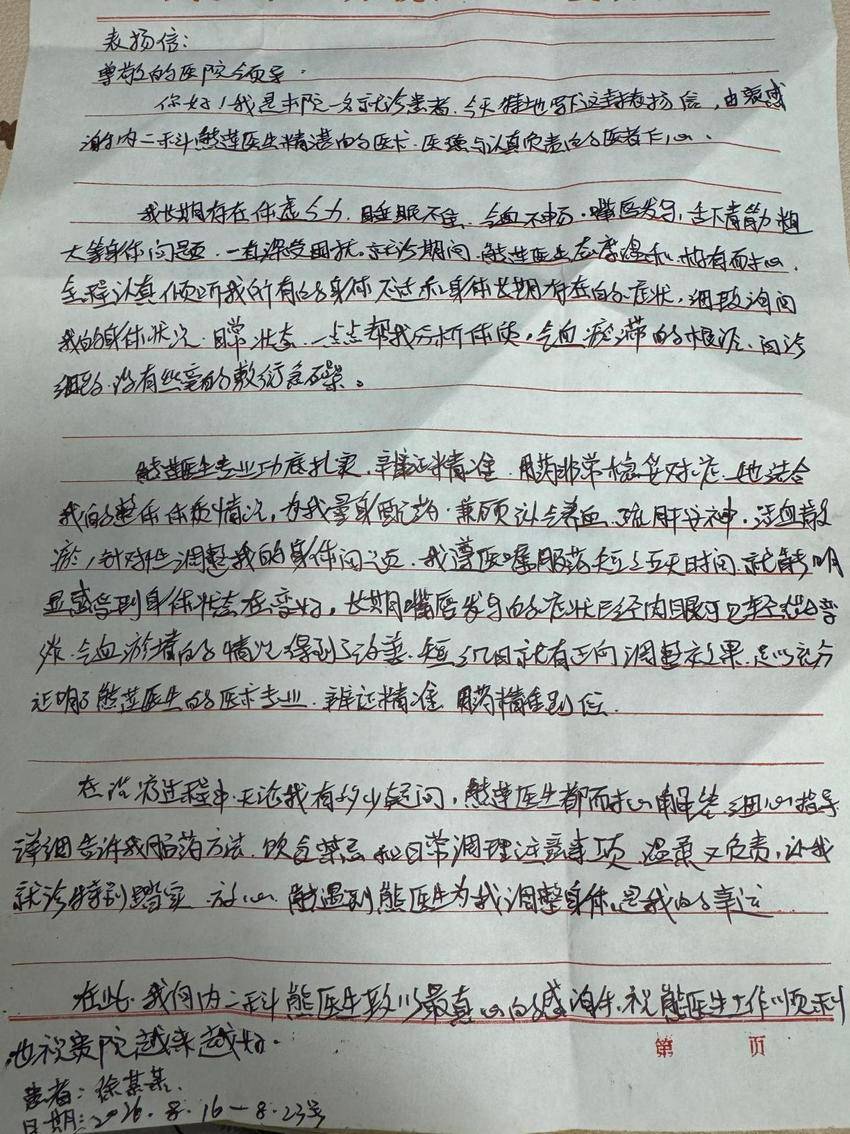 表扬信:
尊敬的医院领导.
你好!我是本院一名就诊患者.今天特地写下这封表扬信,由衷感
谢内二科熊莲医生精湛的医术.医理与认真负责的医者仁心.
我长期存在体虚乏力.睡眠不佳.气血不畅.嘴唇发乌,舌下青筋粗
大等身体问题.一直深受困扰.就诊期间.熊莲医生态度温和.格有耐心.
全程认真倾听我所有的身体不适和身体长期存在的症状,细致询问
我的身体状况.日常状态.一点点帮我分析体质,气血瘀滞的根源.问诊
细致.没有丝毫的敷衍急躁。
熊莲医生专业功底扎实.辨证精准.用药非常稳妥对症.她结合
我的整体体质情况,为我量身配药.兼顾认气养血.疏肝安神.活血散
瘀,针对性调整我的身体问题.我遵医嘱服药短短五天时间.就能明
显感受到身体状态在变好,长期嘴唇发乌的症状已经肉眼可见轻松变
淡.气血瘀堵的情况得到了改善.短短几日就有正向调整效果.足以充分
证明了熊莲医生的医术专业.辨证精准.用药精准到位.
在治疗过程中.无论我有多少疑问,熊莲医生都耐心解答.细心指导
详细告诉我服药方法.饮食禁忌和日常调理注意事项.温柔又负责,让我
就诊特别踏实.放心.能遇到熊医生为我调整身体,是我的幸运
在此.我向内二科熊医生致以最真心的感谢.祝熊医生工作顺利
也祝贵院越来越好.
第 页
患者:徐某某.
日期:2026.8.16-8.23号